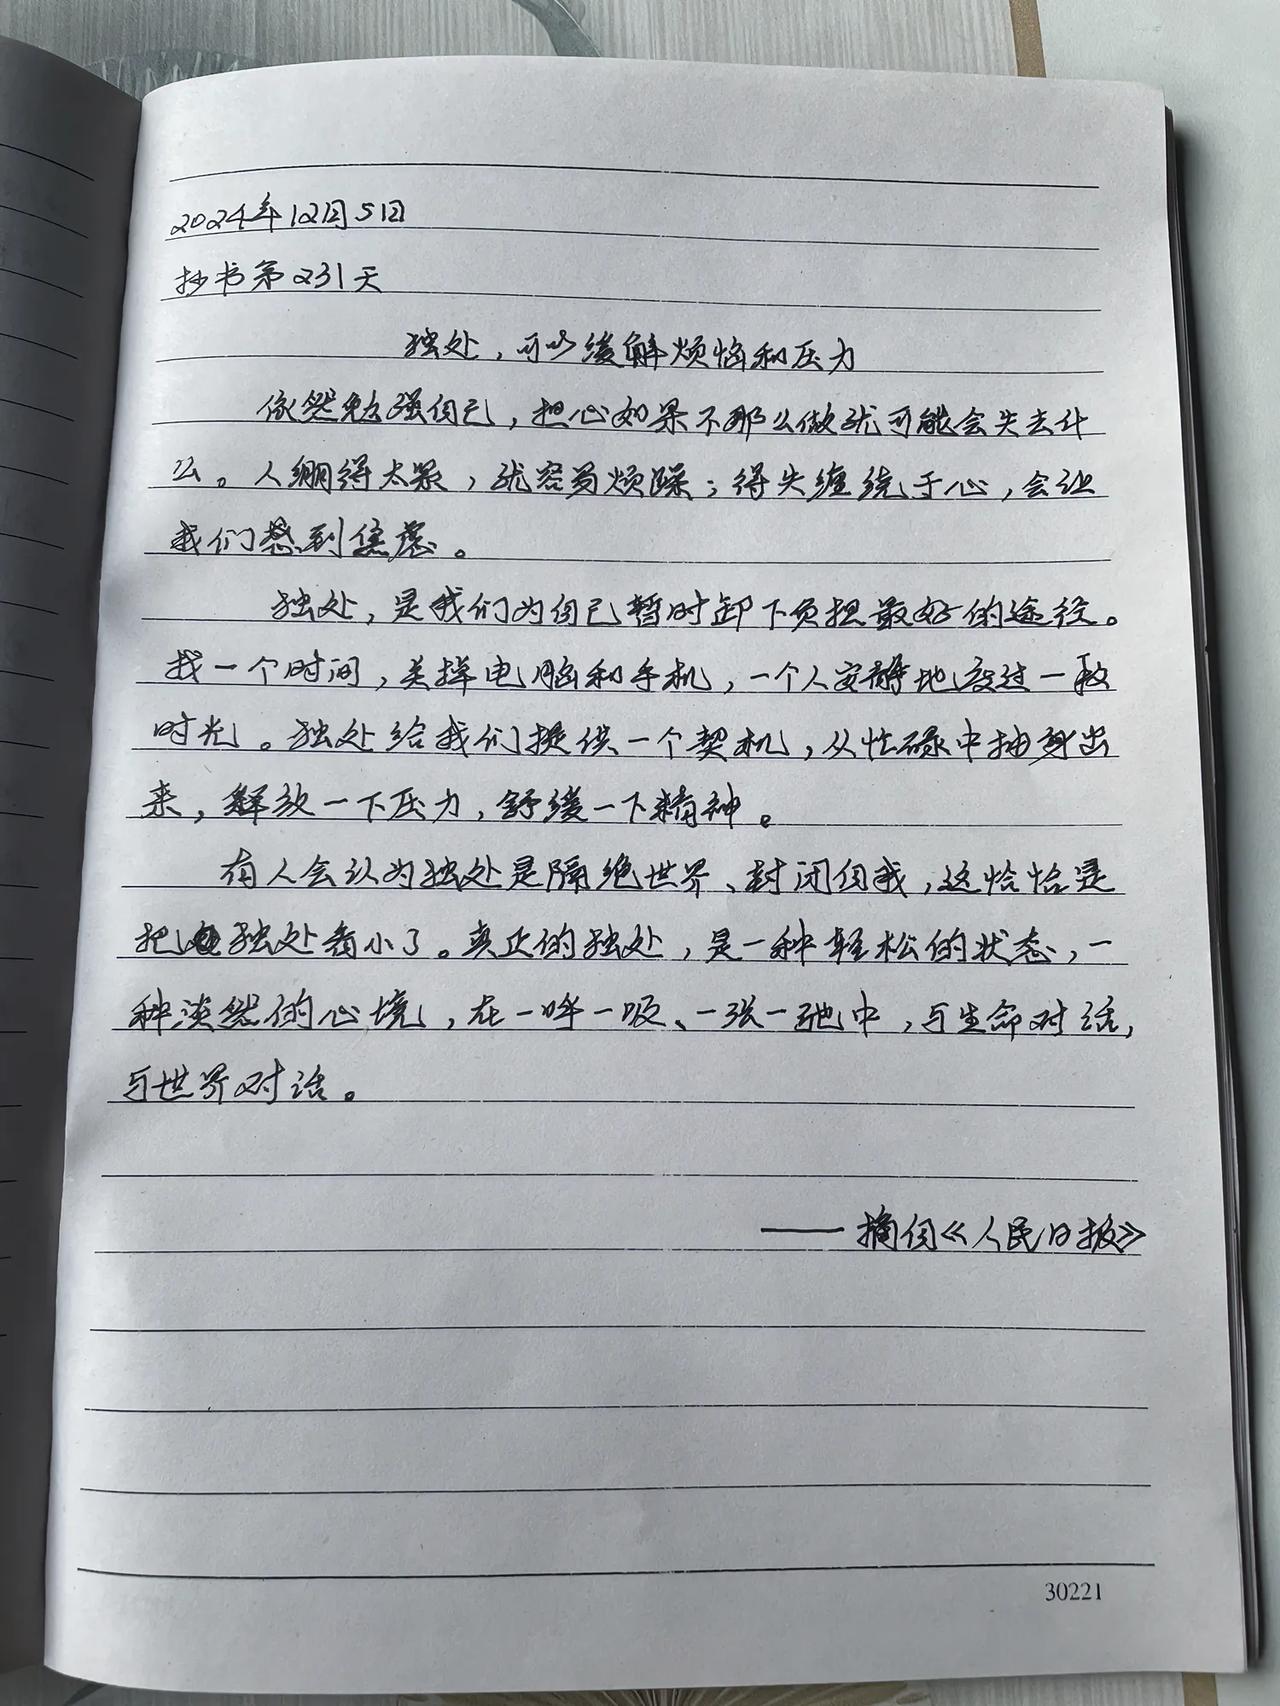 2024年12月5日
抄书第231天
独处，可以缓解烦恼和压力
依然勉强自己，担心如果不那么做就可能会失去什
么。人绷得太紧，就容易烦躁；得失缠绕于心，会让
我们感到焦虑。
独处，是我们为自己暂时卸下负担最好的途径。
找一个时间，关掉电脑和手机，一个人安静地度过一段
时光。独处给我们提供一个契机，从忙碌中抽身出
来，释放一下压力，舒缓一下精神。
有人会认为独处是隔绝世界、封闭自我，这恰恰是
把独处看小了。真正的独处，是一种轻松的状态，一
种淡然的心境，在一呼一吸、一张一弛中，与生命对话，
与世界对话。
——摘自《人民日报》
30221